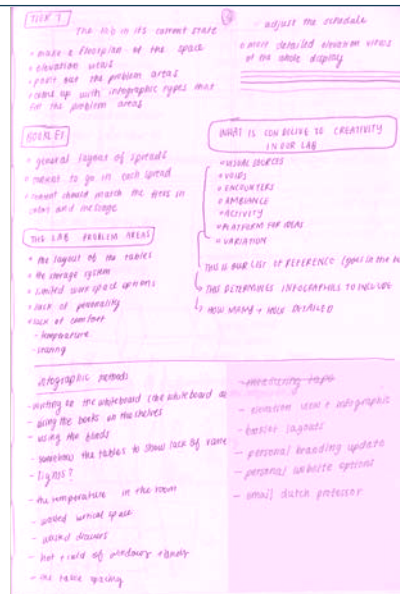 The lab in its current state
• make a floorplan of the space
• elevation views
• point out the problem areas
• come up with infographic types that
for the problem areas
- adjust the schedule
• more detailed elevation views
of the whole display
BOOKLET
• general layout of spreads
• content to go in each spread
• content should match the
color and message
THE LAB PROBLEM AREAS
• the layout of the tables
• the storage system
• limited work space options
• lack of personality
• lack of comfort
- temperature
- seating
WHAT IS CONDUCIVE TO CREATIVITY
IN OUR LAB
• VISUAL SOURCES
• VOIDS
• ENCOUNTERS
• AMBIANCE
• ACTIVITY
• PLATFORM FOR IDEAS
• VARIATION
THIS IS OUR LIST OF REFERENCE (goes in the
THIS DETERMINES INFOGRAPHICS TO INCLUDE
HOW MANY + HOW DETAILED
infographic methods
- writing on the whiteboard
- using the books on the shelves
- using the blinds
- the tables to show lack of
- lights?
- the temperature in the room
- wasted vertical space
- wasted drawers
- hot + cold of windows
- table spacing
- measuring tape
- elevation view + infographic
- booklet layouts
- personal branding update
- personal website options
- email dutch professor